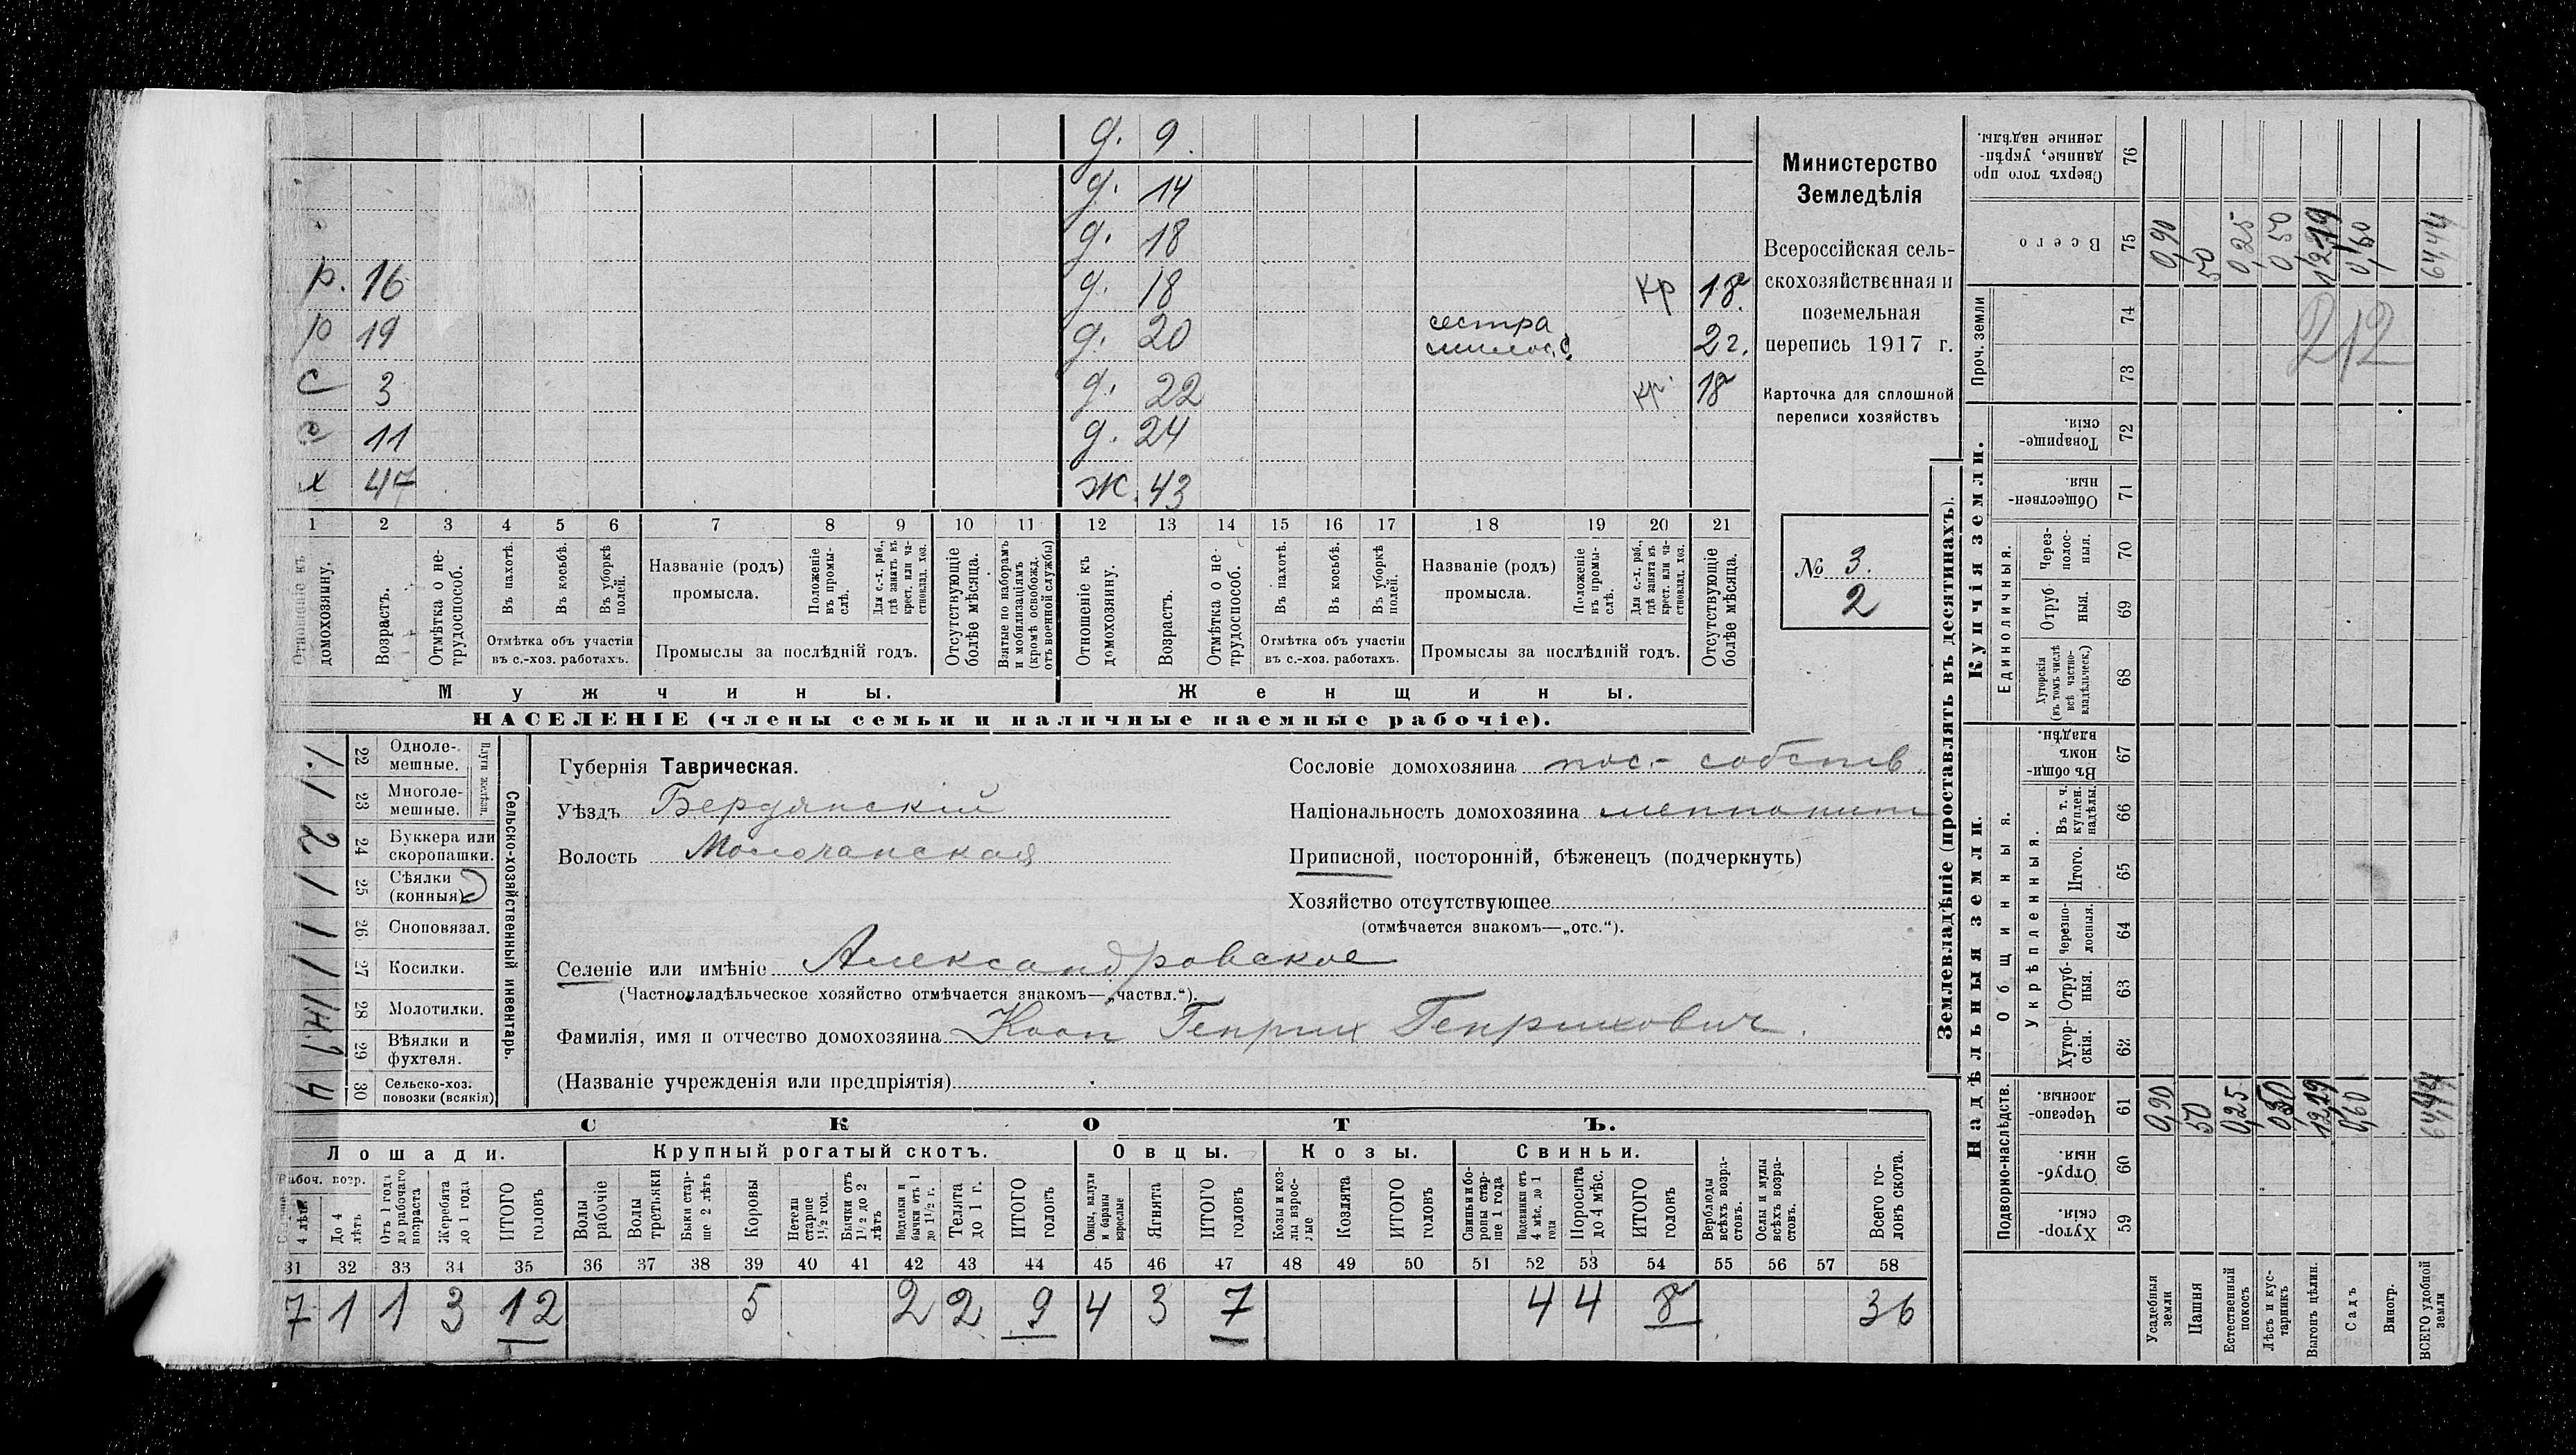 д. 9.
д. 14
д. 18
р. 16 д. 18 кр 18.
р 19 д. 20 сестра милос. 2 г.
с 3 д. 22 кр. 18
с 11 д. 24
х 47 ж. 43
1 2 3 4 5 6 7 8 9 10 11 12 13 14 15 16 17 18 19 20 21
Отношеніе къ домохозяину.
Возрастъ.
Отмѣтка о не-трудоспособ.
Въ пахотѣ.
Въ косьбѣ.
Въ уборкѣ полей.
Отмѣтка объ участіи въ с.-хоз. работахъ.
Названіе (родъ) промысла.
Положеніе въ промы-слѣ.
Для с.-х. раб., гдѣ занятъ въ крест. или ча-стновлад. хоз.
Промыслы за послѣдній годъ.
Отсутствующіе болѣе мѣсяца.
Взятые по наборамъ и мобилизаціямъ (кромѣ освобожд. отъ военной службы)
Отношеніе къ домохозяину.
Возрастъ.
Отмѣтка о не-трудоспособ.
Въ пахотѣ.
Въ косьбѣ.
Въ уборкѣ полей.
Отмѣтка объ участіи въ с.-хоз. работахъ.
Названіе (родъ) промысла.
Положеніе въ промы-слѣ.
Для с.-х. раб., гдѣ занята въ крест. или ча-стновлад. хоз.
Промыслы за послѣдній годъ.
Отсутствующіе болѣе мѣсяца.
Мужчины. Женщины.
НАСЕЛЕНІЕ (члены семьи и наличные наемные рабочіе).
Министерство
Земледѣлія
Всероссійская сель-
скохозяйственная и
поземельная
перепись 1917 г.
Карточка для сплошной
переписи хозяйствъ
№ 3.
2
Сельско-хозяйственный инвентарь.
Плуги желѣзн.
22 Одноле-мешные. 1.
23 Многоле-мешные. 1
24 Буккера или скоропашки. 2
25 Сѣялки (конныя) 1
26 Сноповязал. 1
27 Косилки. 1
28 Молотилки. 1
29 Вѣялки и фухтеля. 1
30 Сельско-хоз. повозки (всякія) 4
Губернія Таврическая.
Уѣздъ Бердянскій
Волость Молочанская
Селеніе или имѣніе Александровское
(Частновладѣльческое хозяйство отмѣчается знакомъ—„частвл.“).
Фамилія, имя и отчество домохозяина Кооп Генрих Генрихович.
(Названіе учрежденія или предпріятія)
Сословіе домохозяина пос.- собств
Національность домохозяина меннонит
Приписной, посторонній, бѣженецъ (подчеркнуть)
Хозяйство отсутствующее
(отмѣчается знакомъ—„отс.“).
СКОТЪ.
Лошади. Крупный рогатый скотъ. Овцы. Козы. Свиньи.
Рабоч. возр.
4 лѣтъ
До 4 лѣтъ
Отъ 1 года до рабочаго возраста
Жеребята до 1 года
ИТОГО головъ
Волы рабочіе
Волы третьяки
Быки стар-ше 2 лѣтъ
Коровы
Нетели старше 1½ год.
Бычки отъ 1½ до 2 лѣтъ
Подтелки и бычки отъ 1 до 1½ г.
Телята до 1 г.
ИТОГО головъ
Овцы, валухи и бараны взрослые
Ягнята
ИТОГО головъ
Козы и коз-лы взрос-лые
Козлята
ИТОГО головъ
Свиньи и бо-ровы стар-ше 1 года
Подсвинки отъ 4 мѣс. до 1 года
Поросята до 4 мѣс.
ИТОГО головъ
Верблюды всѣхъ возра-стовъ.
Ослы и мулы всѣхъ возра-стовъ.
Всего го-ловъ скота.
31 32 33 34 35 36 37 38 39 40 41 42 43 44 45 46 47 48 49 50 51 52 53 54 55 56 57 58
7 1 1 3 12 5 2 2 9 4 3 7 4 4 8 36
Землевладѣніе (проставлять въ десятинахъ).
Надѣльныя земли. Купчія земли. Проч. земли
Подворно-наслѣдств.
Общинныя.
Укрѣпленныя.
Единоличныя.
Хутор-скія. 59
Отруб-ныя. 60
Черезпо-лосныя. 61
Хутор-скія. 62
Отруб-ныя. 63
Черезпо-лосныя. 64
Итого. 65
Въ т. ч. куплен. надѣлы. 66
Въ общи-номъ владѣн. 67
Хуторскія (въ томъ числѣ всѣ частно-владѣльческ.) 68
Отруб ныя. 69
Через-полос-ныя. 70
Обществен-ныя. 71
Товарище-скія. 72
73
74
Всего 75
Сверхъ того про данные, укрѣп-ленные надѣлы. 76
Усадебныя земли 0,90 0,90
Пашня 50 50
Естественный покосъ 0,25 0,25
Лѣсъ и кус-тарникъ 0,50 0,50
Выгонъ цѣлин. 12,19 12,19
Садъ 0,60 0,60
Виногр.
ВСЕГО удобной земли 64,44 64,44
212